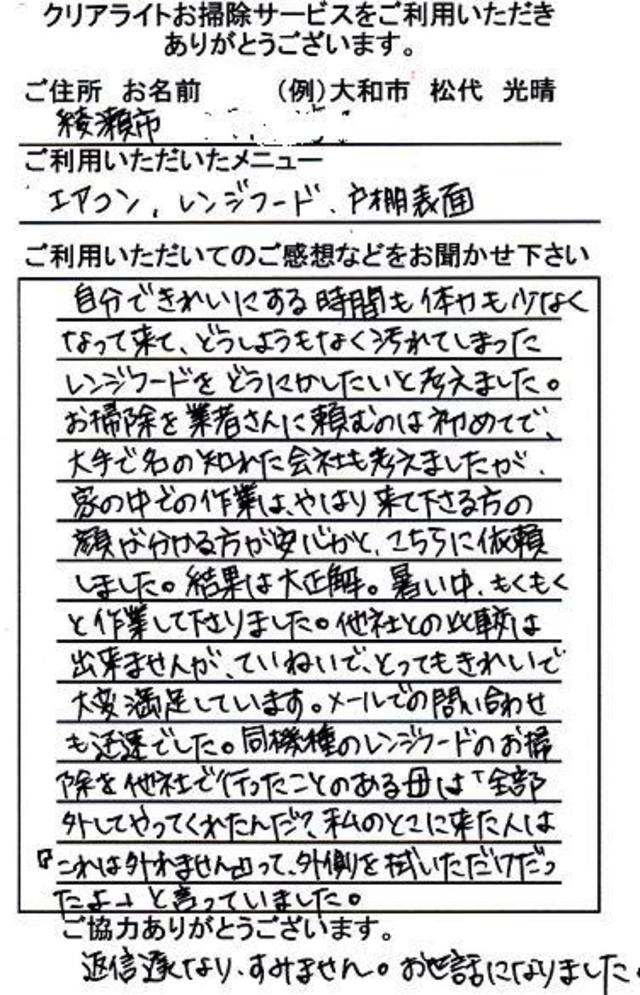 クリアライトお掃除サービスをご利用いただき
ありがとうございます。
ご住所 お名前 (例)大和市 松代 光晴
綾瀬市
ご利用いただいたメニュー
エアコン、レンジフード、戸棚表面
ご利用いただいてのご感想などをお聞かせ下さい
自分できれいにする時間も体力も少なく
なって来て、どうしようもなく汚れてしまった
レンジフードをどうにかしたいと考えました。
お掃除を業者さんに頼むのは初めてで、
大手で名の知れた会社も考えましたが、
家の中での作業は、やはり来て下さる方の
顔が分かる方が安心かと、こちらに依頼
しました。結果は大正解。暑い中、もくもく
と作業して下さりました。他社との比較は
出来ませんが、ていねいで、とってもきれいで
大変満足しています。メールでの問い合わせ
も迅速でした。同機種のレンジフードのお掃
除を他社で行ったことのある母は「全部
外してやってくれたんだ?、私のとこに来た人は
『これは外れません』って、外側を拭いただけだっ
たよ」と言っていました。
ご協力ありがとうございます。
返信遅くなり、すみません。お世話になりました。